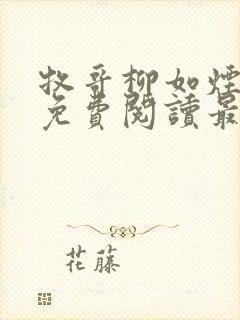 牧哥柳如煙
免費閱讀最
花藤